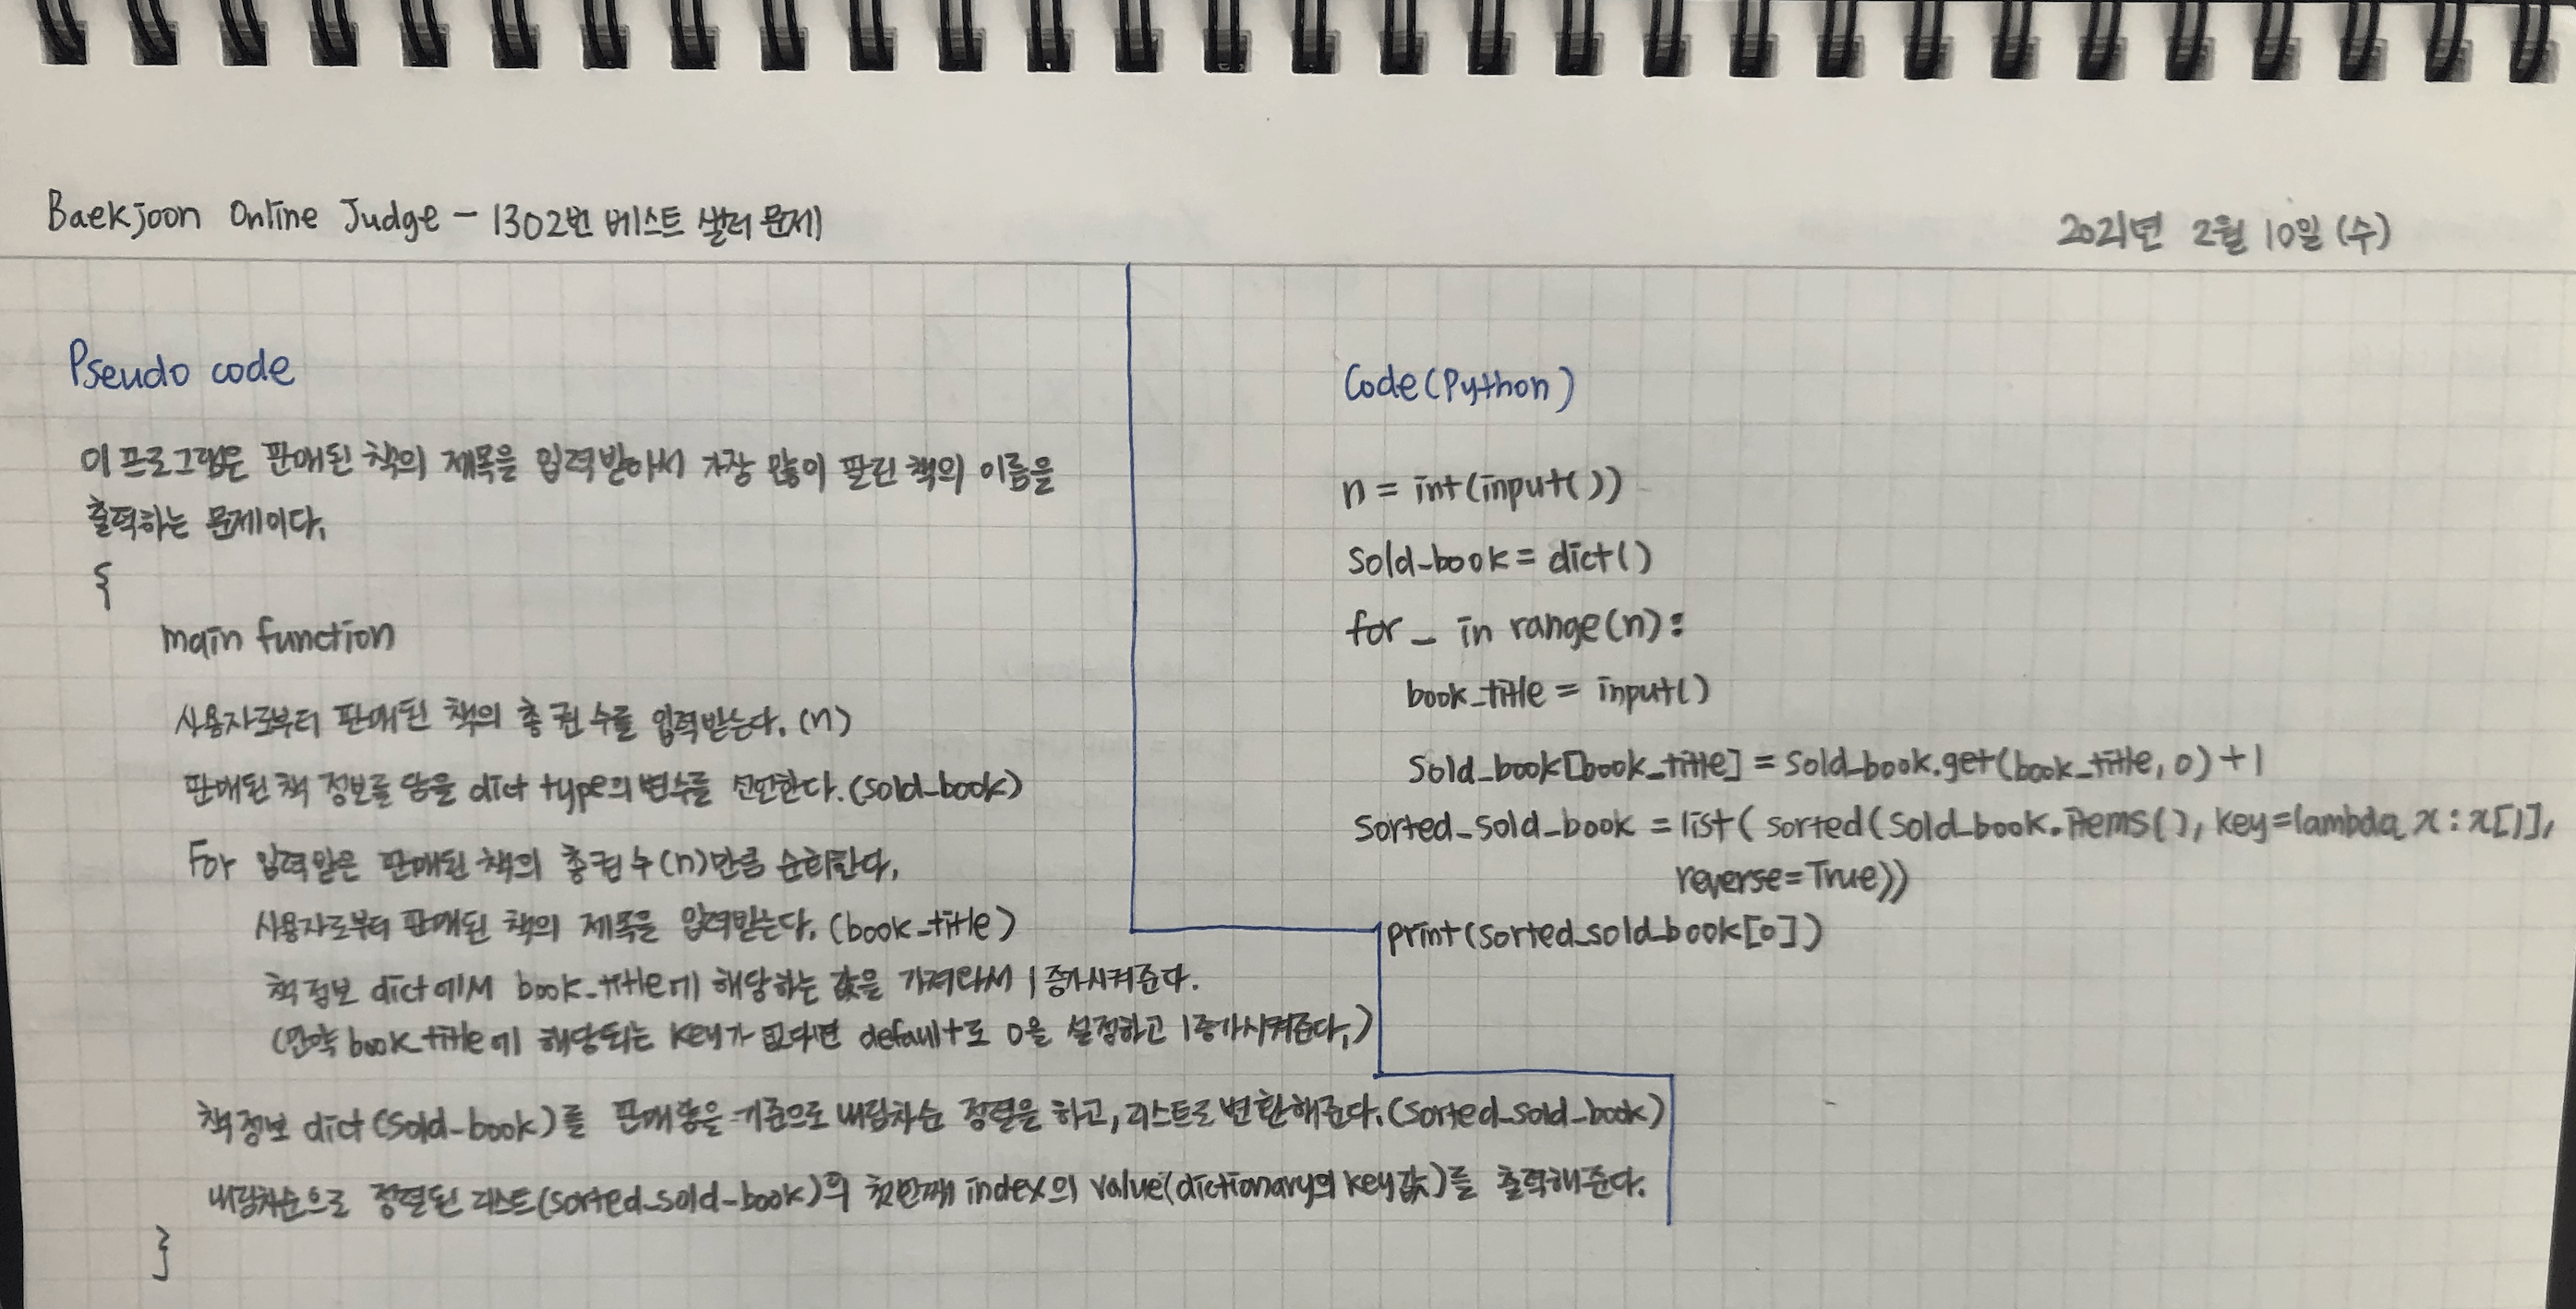 Baekjoon Online Judge - 1302번 베스트 셀러 문제
2021년 2월 10일 (수)
Pseudo code
이 프로그램은 판매된 책의 제목을 입력받아서 가장 많이 팔린 책의 이름을
출력하는 문제이다.
{
main function
사용자로부터 판매된 책의 총 권 수를 입력받는다. (n)
판매된 책 정보를 담을 dict type의 변수를 선언한다. (sold_book)
For 입력받은 판매된 책의 총 권 수(n)만큼 순회한다.
사용자로부터 판매된 책의 제목을 입력받는다. (book_title)
책 정보 dict에서 book_title에 해당하는 값을 가져와서 1 증가시켜준다.
(만약 book_title에 해당되는 key가 없다면 default로 0을 설정하고 1증가시켜준다.)
책 정보 dict (sold_book)를 판매량을 기준으로 내림차순 정렬을 하고, 리스트로 변환해준다. (sorted_sold_book)
내림차순으로 정렬된 리스트(sorted_sold_book)의 첫번째 index의 value(dictionary의 key값)를 출력해준다.
}
Code (Python)
n = int(input())
sold_book = dict()
for _ in range(n):
book_title = input()
sold_book[book_title] = sold_book.get(book_title, 0) + 1
sorted_sold_book = list( sorted( sold_book.items(), key=lambda x : x[1],
reverse=True))
print(sorted_sold_book[0])